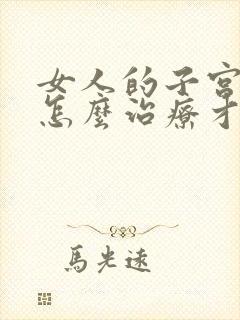 女人的子宮
怎麼治療才
馬光遠